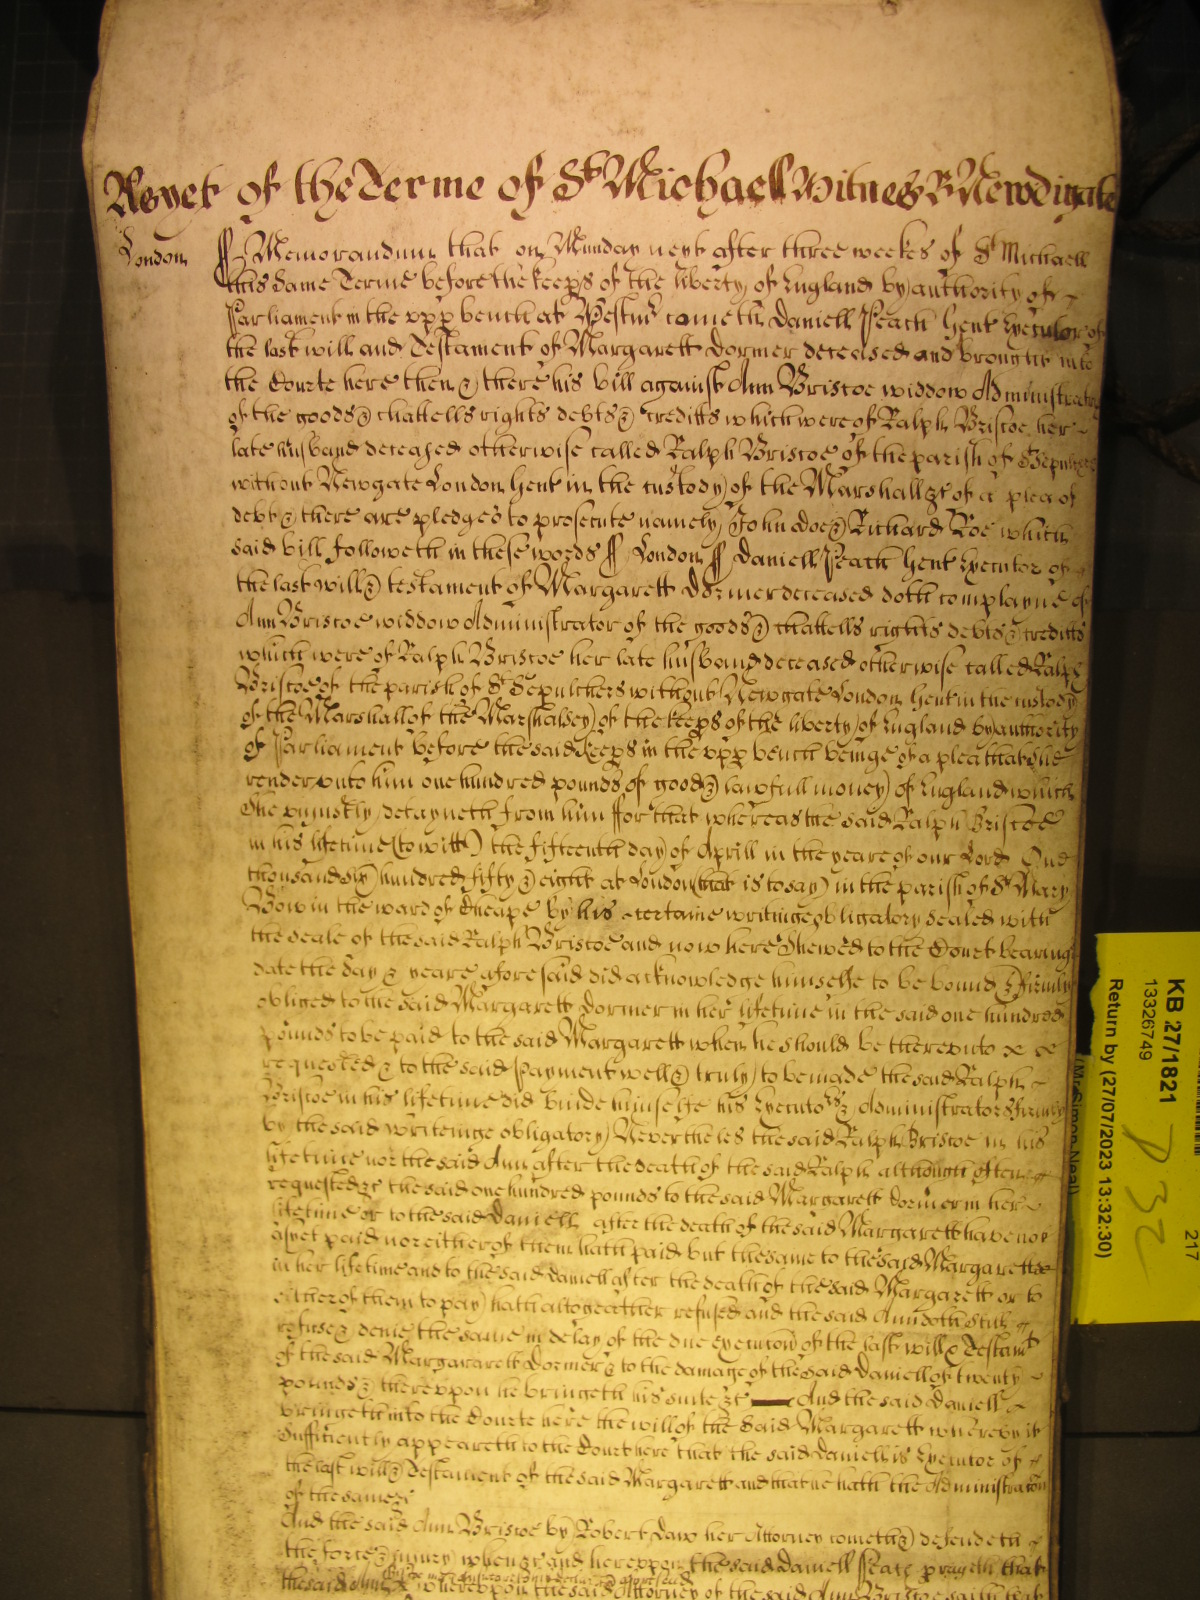 As yet of the Terme of St Michael Witnes R Newdigate
London ff Memorandum that on Munday next after three weekes of St Michaell
this same Terme before the keeps of the liberty of England by authority of
Parliament in the upp bench at Westmr cometh Daniell Peach gent Executor of
the last will and Testament of Margarett Dormer deceased and brought into
the Courte here then & there his bill against Ann Briscoe widdow Administrator
of the goods & chattells rights debts & creditts which were of Ralph Briscoe her
late husband deceased otherwise called Ralph Briscoe of the parish of Sepulchers
without Newgate London gent in the custody of the Marshall &c of a plea of
debt & there are pledges to prosecute namely John Doe & Richard Roe which
said bill followeth in these words ff London ff Daniell Peach gent Executor of
the last will & testament of Margarett Dormer deceased doth complayne of
Ann Briscoe widdow Administrator of the goods & chattells rights debts & creditts
which were of Ralph Briscoe her late husband deceased otherwise called Ralph
Briscoe of the parish of St Sepulchers without Newgate London gent in the custody
of the Marshall of the Marshalsey of the keeps of the liberty of England by authority
of Parliament before the said keeps in the upp bench beinge of a plea that she
render unto him one hundred pounds of good & lawfull money of England which
she uniustly detayneth from him ffor that whereas the said Ralph Briscoe
in his lifetime (to witt) the fifteenth day of Aprill in the yeare of our Lord One
thousand six hundred fifty & eight at London (that is to say) in the parish of St Mary
Bow in the ward of Cheape by his certaine writinge obligatory sealed with
the seale of the said Ralph Briscoe and now here shewed to the Court bearing
date the day & yeare aforesaid did acknowledge himselfe to be bound & firmly
obliged to the said Margarett Dormer in her lifetime in the said one hundred
pounds to be paid to the said Margarett when he should be thereunto
requested & to the said Payment well & truly to be made the said Ralph
Briscoe in his lifetime did binde himselfe his Executors & Administrators firmly
by the said writeinge obligatory Nevertheles the said Ralph Briscoe in his
lifetime nor the said Ann after the death of the said Ralph although often
requested &c the said one hundred pounds to the said Margarett Dormer in her
lifetime or to the said Daniell after the death of the said Margarett have not
as yet paid nor either of them hath paid but the same to the said Margarett
in her lifetime and to the said Daniell after the death of the said Margarett or to
either of them to pay hath altogeather refused and the said Ann doth still
refuse & denie the same in delay of the due execucon of the last will & Testamt
of the said Margararett Dormer & to the damage of the said Daniell of twenty
pounds & thereupon he bringeth his suite &c And the said Daniell
bringeth into the Courte here the will of the said Margarett whereby it
sufficiently appeareth to the Court here that the said Daniell is Executor of
the last will & Testament of the said Margarett and that he hath the Administration
of the same &c
And the said Ann Briscoe by Robert Law her Attorney cometh & defendeth
the force & iniury when &c and hereupon the said Daniell Peach prayeth that
the said Ann whereupon the said Attorney of the said Ann Briscoe saith that
KB 27/1821
13326749
Return by (27/07/2023 13:32:30)
(Mr Simon Neal)
217